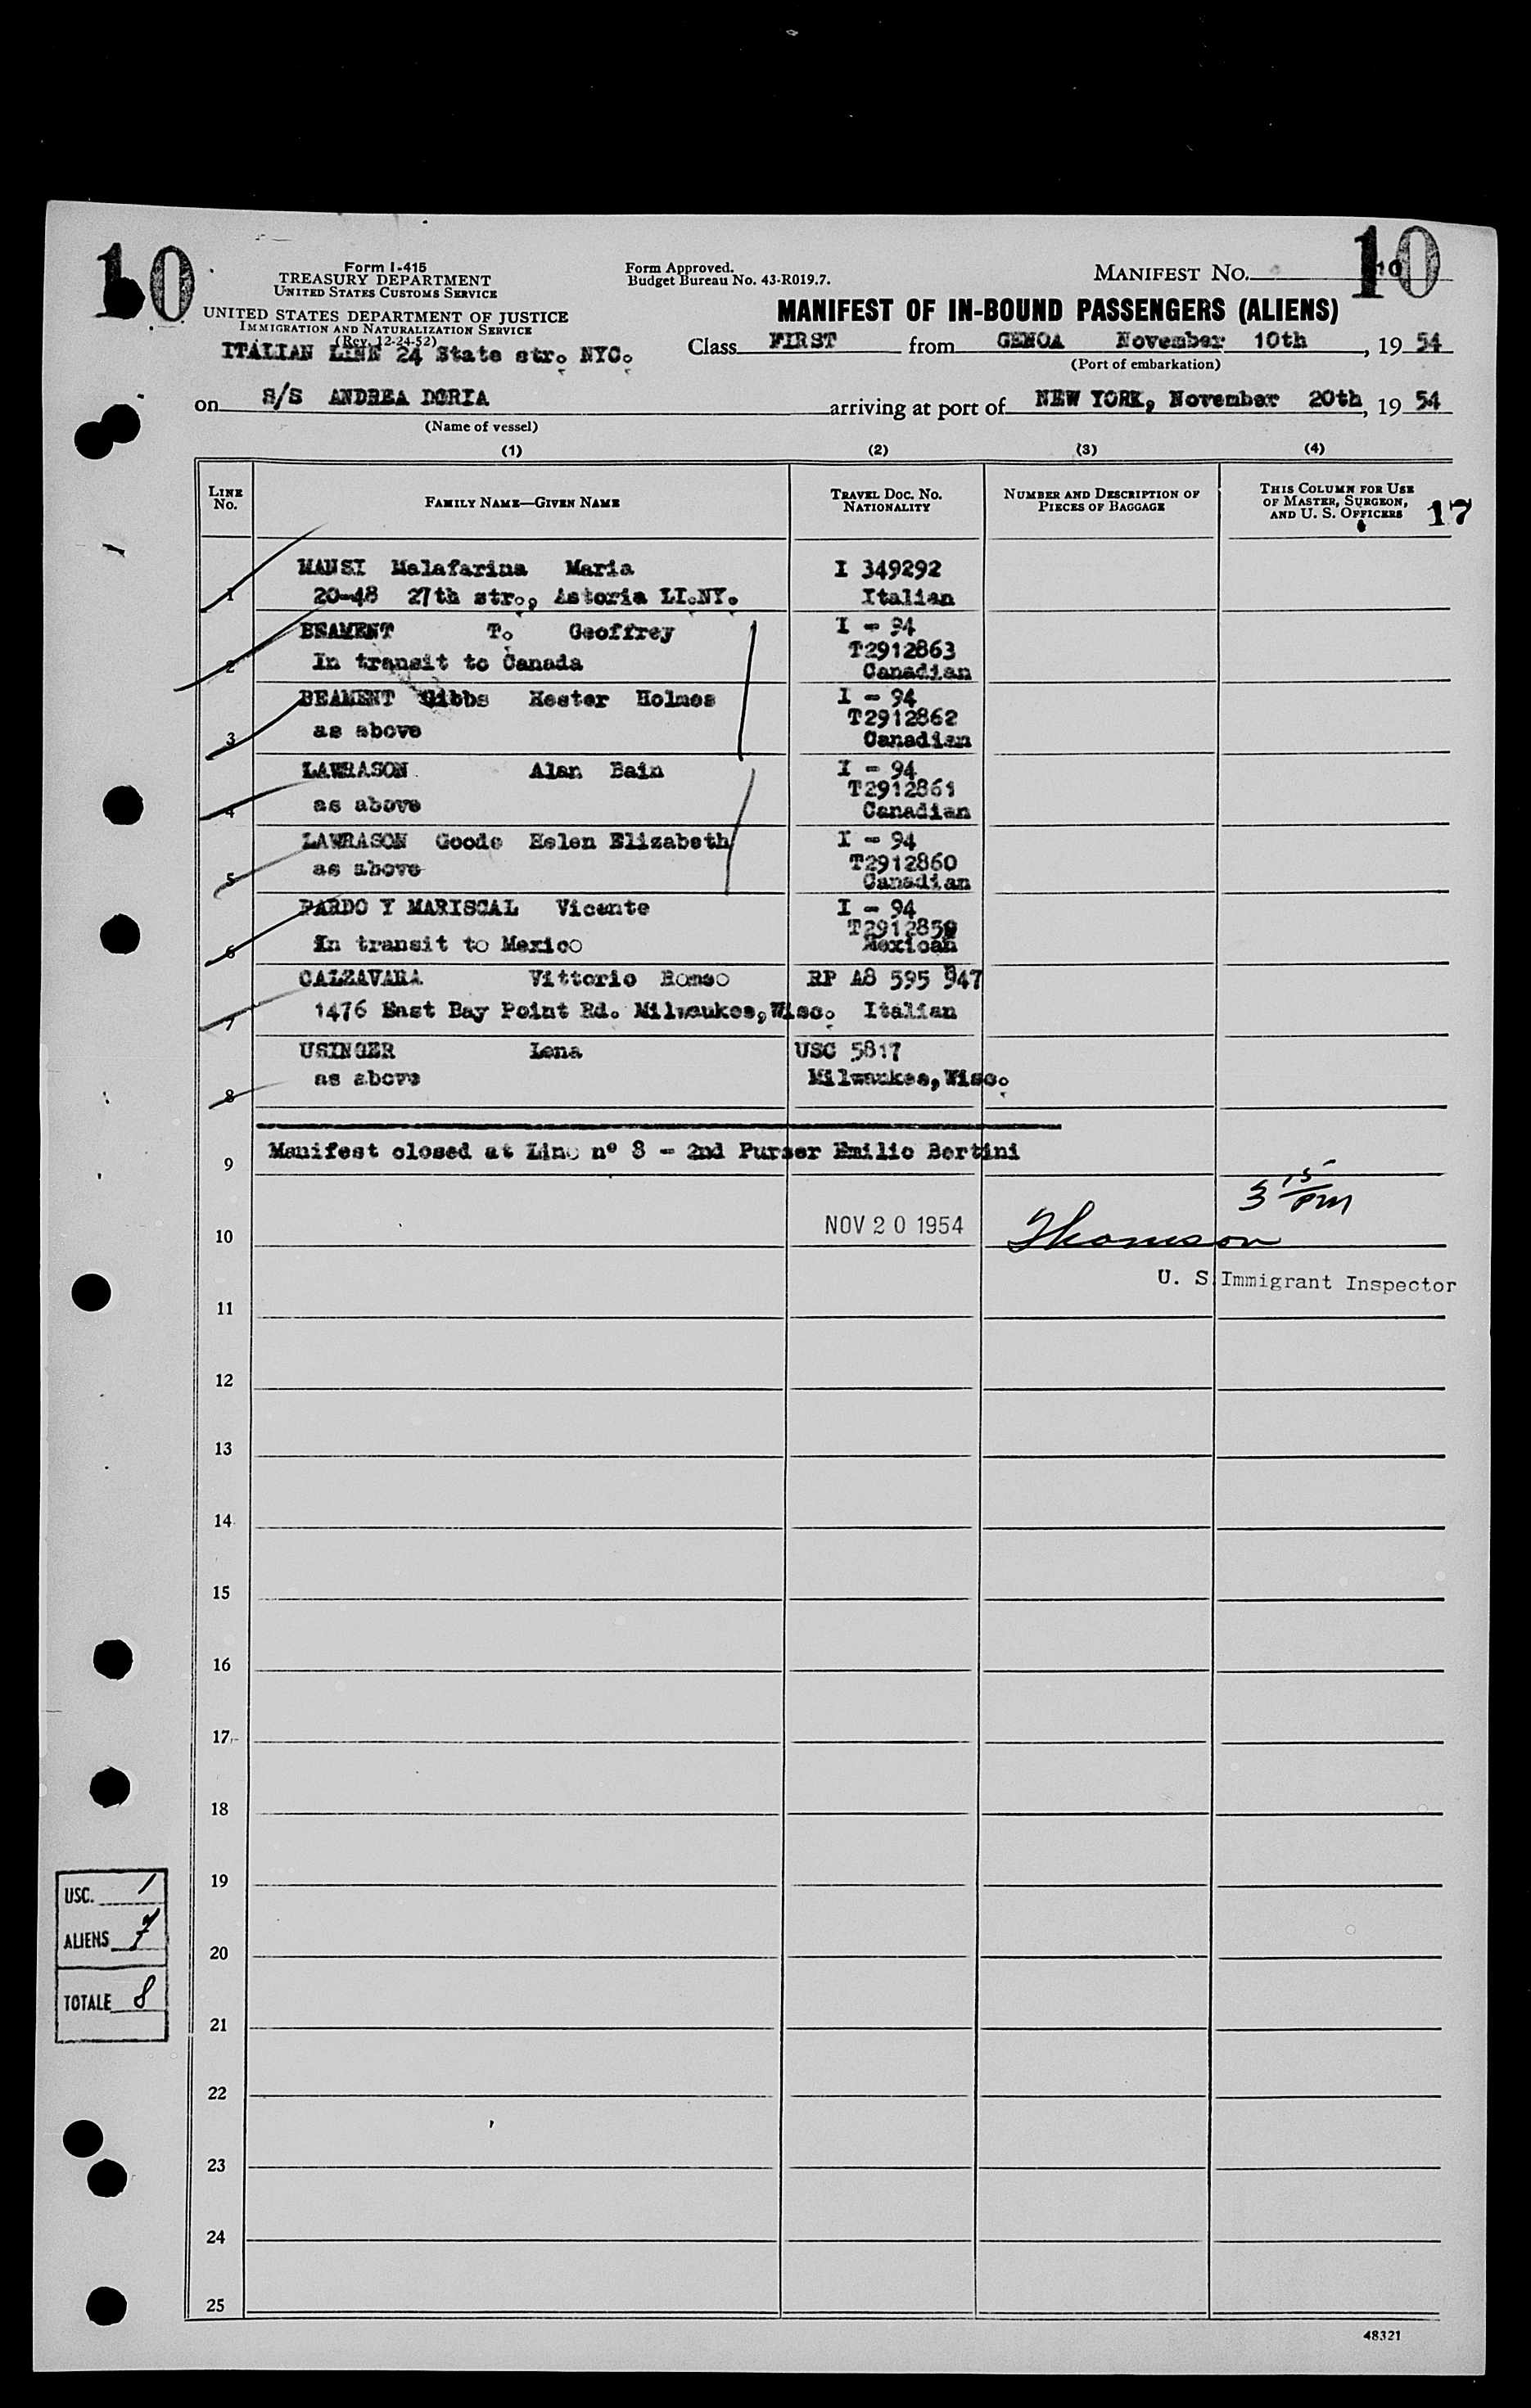 10
10
Form I-415
TREASURY DEPARTMENT
UNITED STATES CUSTOMS SERVICE
UNITED STATES DEPARTMENT OF JUSTICE
IMMIGRATION AND NATURALIZATION SERVICE
(Rev. 12-24-52)
ITALIAN LINE 24 State str. NYC.
Form Approved.
Budget Bureau No. 43-R019.7.
MANIFEST NO. 10
MANIFEST OF IN-BOUND PASSENGERS (ALIENS)
Class FIRST from GENOA November 10th, 19 54
(Port of embarkation)
on S/S ANDREA DORIA arriving at port of NEW YORK, November 20th, 19 54
(Name of vessel)
(1) (2) (3) (4)
LINE No. FAMILY NAME—GIVEN NAME TRAVEL DOC. NO. NATIONALITY NUMBER AND DESCRIPTION OF PIECES OF BAGGAGE THIS COLUMN FOR USE OF MASTER, SURGEON, AND U. S. OFFICERS 17
MANSI Malafarina Maria I 349292
1 20-48 27th str., Astoria LI.NY. Italian
BEAMENT T. Geoffrey I - 94
T2912863
2 In transit to Canada Canadian
BEAMENT Gibbs Hester Holmes I - 94
T2912862
3 as above Canadian
LAWRASON Alan Bain I - 94
T2912861
4 as above Canadian
LAWRASON Goode Helen Elizabeth I - 94
T2912860
5 as above Canadian
PARDO Y MARISCAL Vicente I - 94
T2912859
6 In transit to Mexico Mexican
CALZAVARA Vittorio Romeo RP A8 595 947
7 1476 East Bay Point Rd. Milwaukee, Wisc. Italian
USINGER Lena USC 5817
8 as above Milwaukee, Wisc.
9 Manifest closed at Line nº 8 - 2nd Purser Emilio Bertini
3 15 PM
10 NOV 20 1954 Thomson
U. S. Immigrant Inspector
11
12
13
14
15
16
17
18
19
USC. 1
ALIENS 7
20
TOTALE 8
21
22
23
24
25
48321